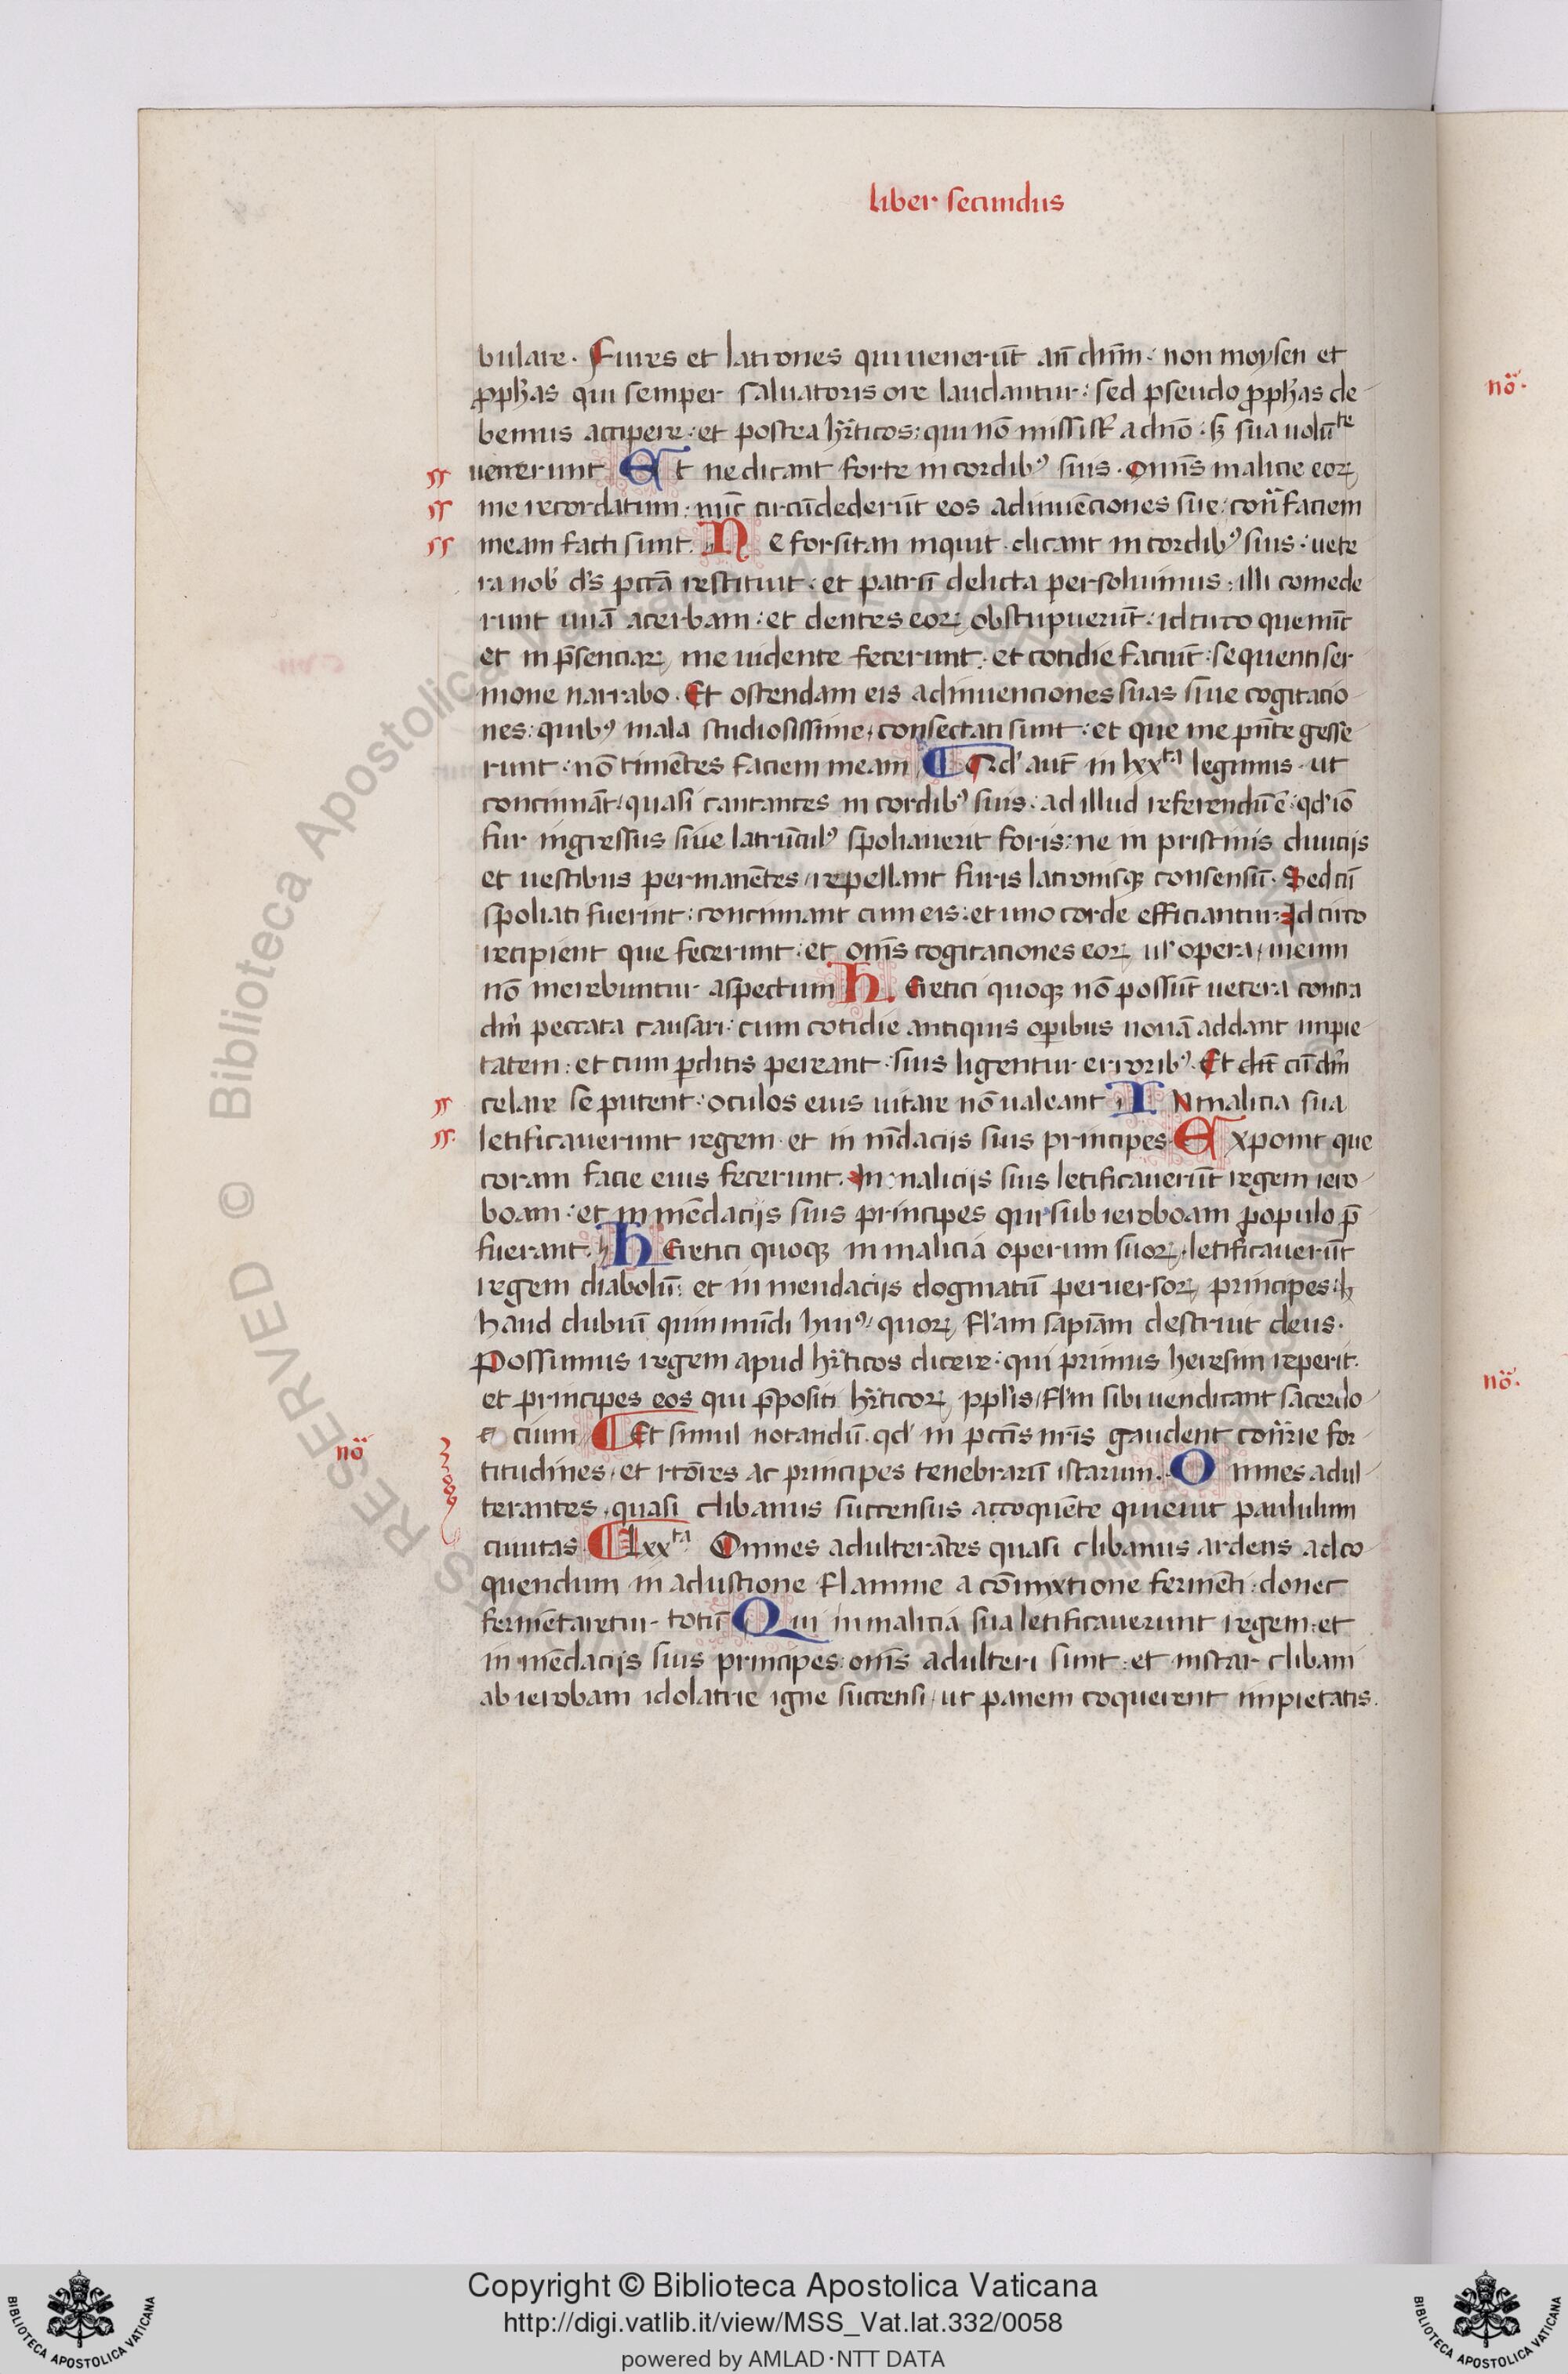 liber secundus
bulare. Fures et latrones qui uenerūt añ dñm: non moysen et
ꝓph̃as qui semper saluatoris ore laudantur: sed pseudo ꝓph̃as de-
bemus accipere: et postea hr̃ticos: qui nō missi st̃ a dño: sꝫ sua uolūte
uenerunt Et ne dicant forte in cordibꝰ suis. omñs malicie eoꝝ
me recordatum: nūc circūdederūt eos adinuēciones sue: corã faciem
meam facti sunt. Ne forsitan inquit. dicant in cordibꝰ suis: uete
ra nob' ds̃ pctã restituit: et patrū delicta persoluimus: illi comede
runt uuā acerbam: et dentes eoꝝ obstupuerūt: idcirco que nūc
et in p̄senciaꝝ me uidente fecerunt: et cotidie faciūt: sequenti ser-
mone narrabo. Et ostendam eis adinuenciones suas siue cogitacio-
nes: quibꝰ mala studiosissime consectati sunt: et que me pn̄te gesse-
runt: nō timētes faciem meam Qd' aut̄ in lxxta legimus. ut
concinnāt: quasi cantantes in cordibꝰ suis: ad illud referendū ē: qd' iō
fur ingressus siue latrūculꝰ spoliauerit foris: ne in pristinis diuicijs
et uestibus permanētes, repellant furis latronisqꝫ consensū. Sed cū
spoliati fuerint: concinnant cum eis: et uno corde efficiantur. Idcirco
recipient que fecerunt: et om̄s cogitaciones eoꝝ ul' opera, meum
nō merebuntur aspectum Heretici quoqꝫ nō possūt uetera contra
dm̄ peccata causari: cum cotidie antiquis opibus nouā addant impie-
tatem: et cum ꝑditis pereant: suis ligentur erroribꝰ. Et dn̄t cū dm̄
celare se putent: oculos eius uitare nō ualeant IN malicia sua
letificauerunt regem et in mn̄dacijs suis principes Exponit que
coram facie eius fecerunt. In malicijs suis letificauerūt regem iero-
boam: et in mēdacijs suis principes qui sub ieroboam ꝓpopulo p̄
fuerant. Heretici quoqꝫ in malicia operum suoꝝ, letificauerūt
regem diabolū: et in mendacijs dogmatū peruersoꝝ principes: h
haud dubiū quin mūdi huiꝰ, quoꝝ fl'am sapiam destruit deus.
Possumus regem apud hr̃ticos dicere: qui primus heresim reperit.
et principes eos qui p̄positi hr̃ticoꝝ pplis, fl'm sibi uendicant sacerdo-
cium Et simul notandū. qd' in pcc̄is nr̄is gaudent cont̄rie for-
titudines, et rc̄ores ac principes tenebrarū istarum. Omnes adul-
terantes, quasi clibanus succensus a coquēte quieuit paululum
ciuitas lxxta Omnes adulterātes quasi clibanus ardens ad co-
quendum in adustione flamme a cōmixtione fermēti: donec
fermētaretur totū Qui in malicia sua letificauerunt regem: et
in mēdacijs suis principes: om̄s adulteri sunt: et instar clibani
ab ierobam idolatrie igne succensi, ut panem coquerent impietatis.
nō
nō.
nō.
Copyright © Biblioteca Apostolica Vaticana
http://digi.vatlib.it/view/MSS_Vat.lat.332/0058
powered by AMLAD·NTT DATA
BIBLIOTECA APOSTOLICA VATICANA
BIBLIOTECA APOSTOLICA VATICANA